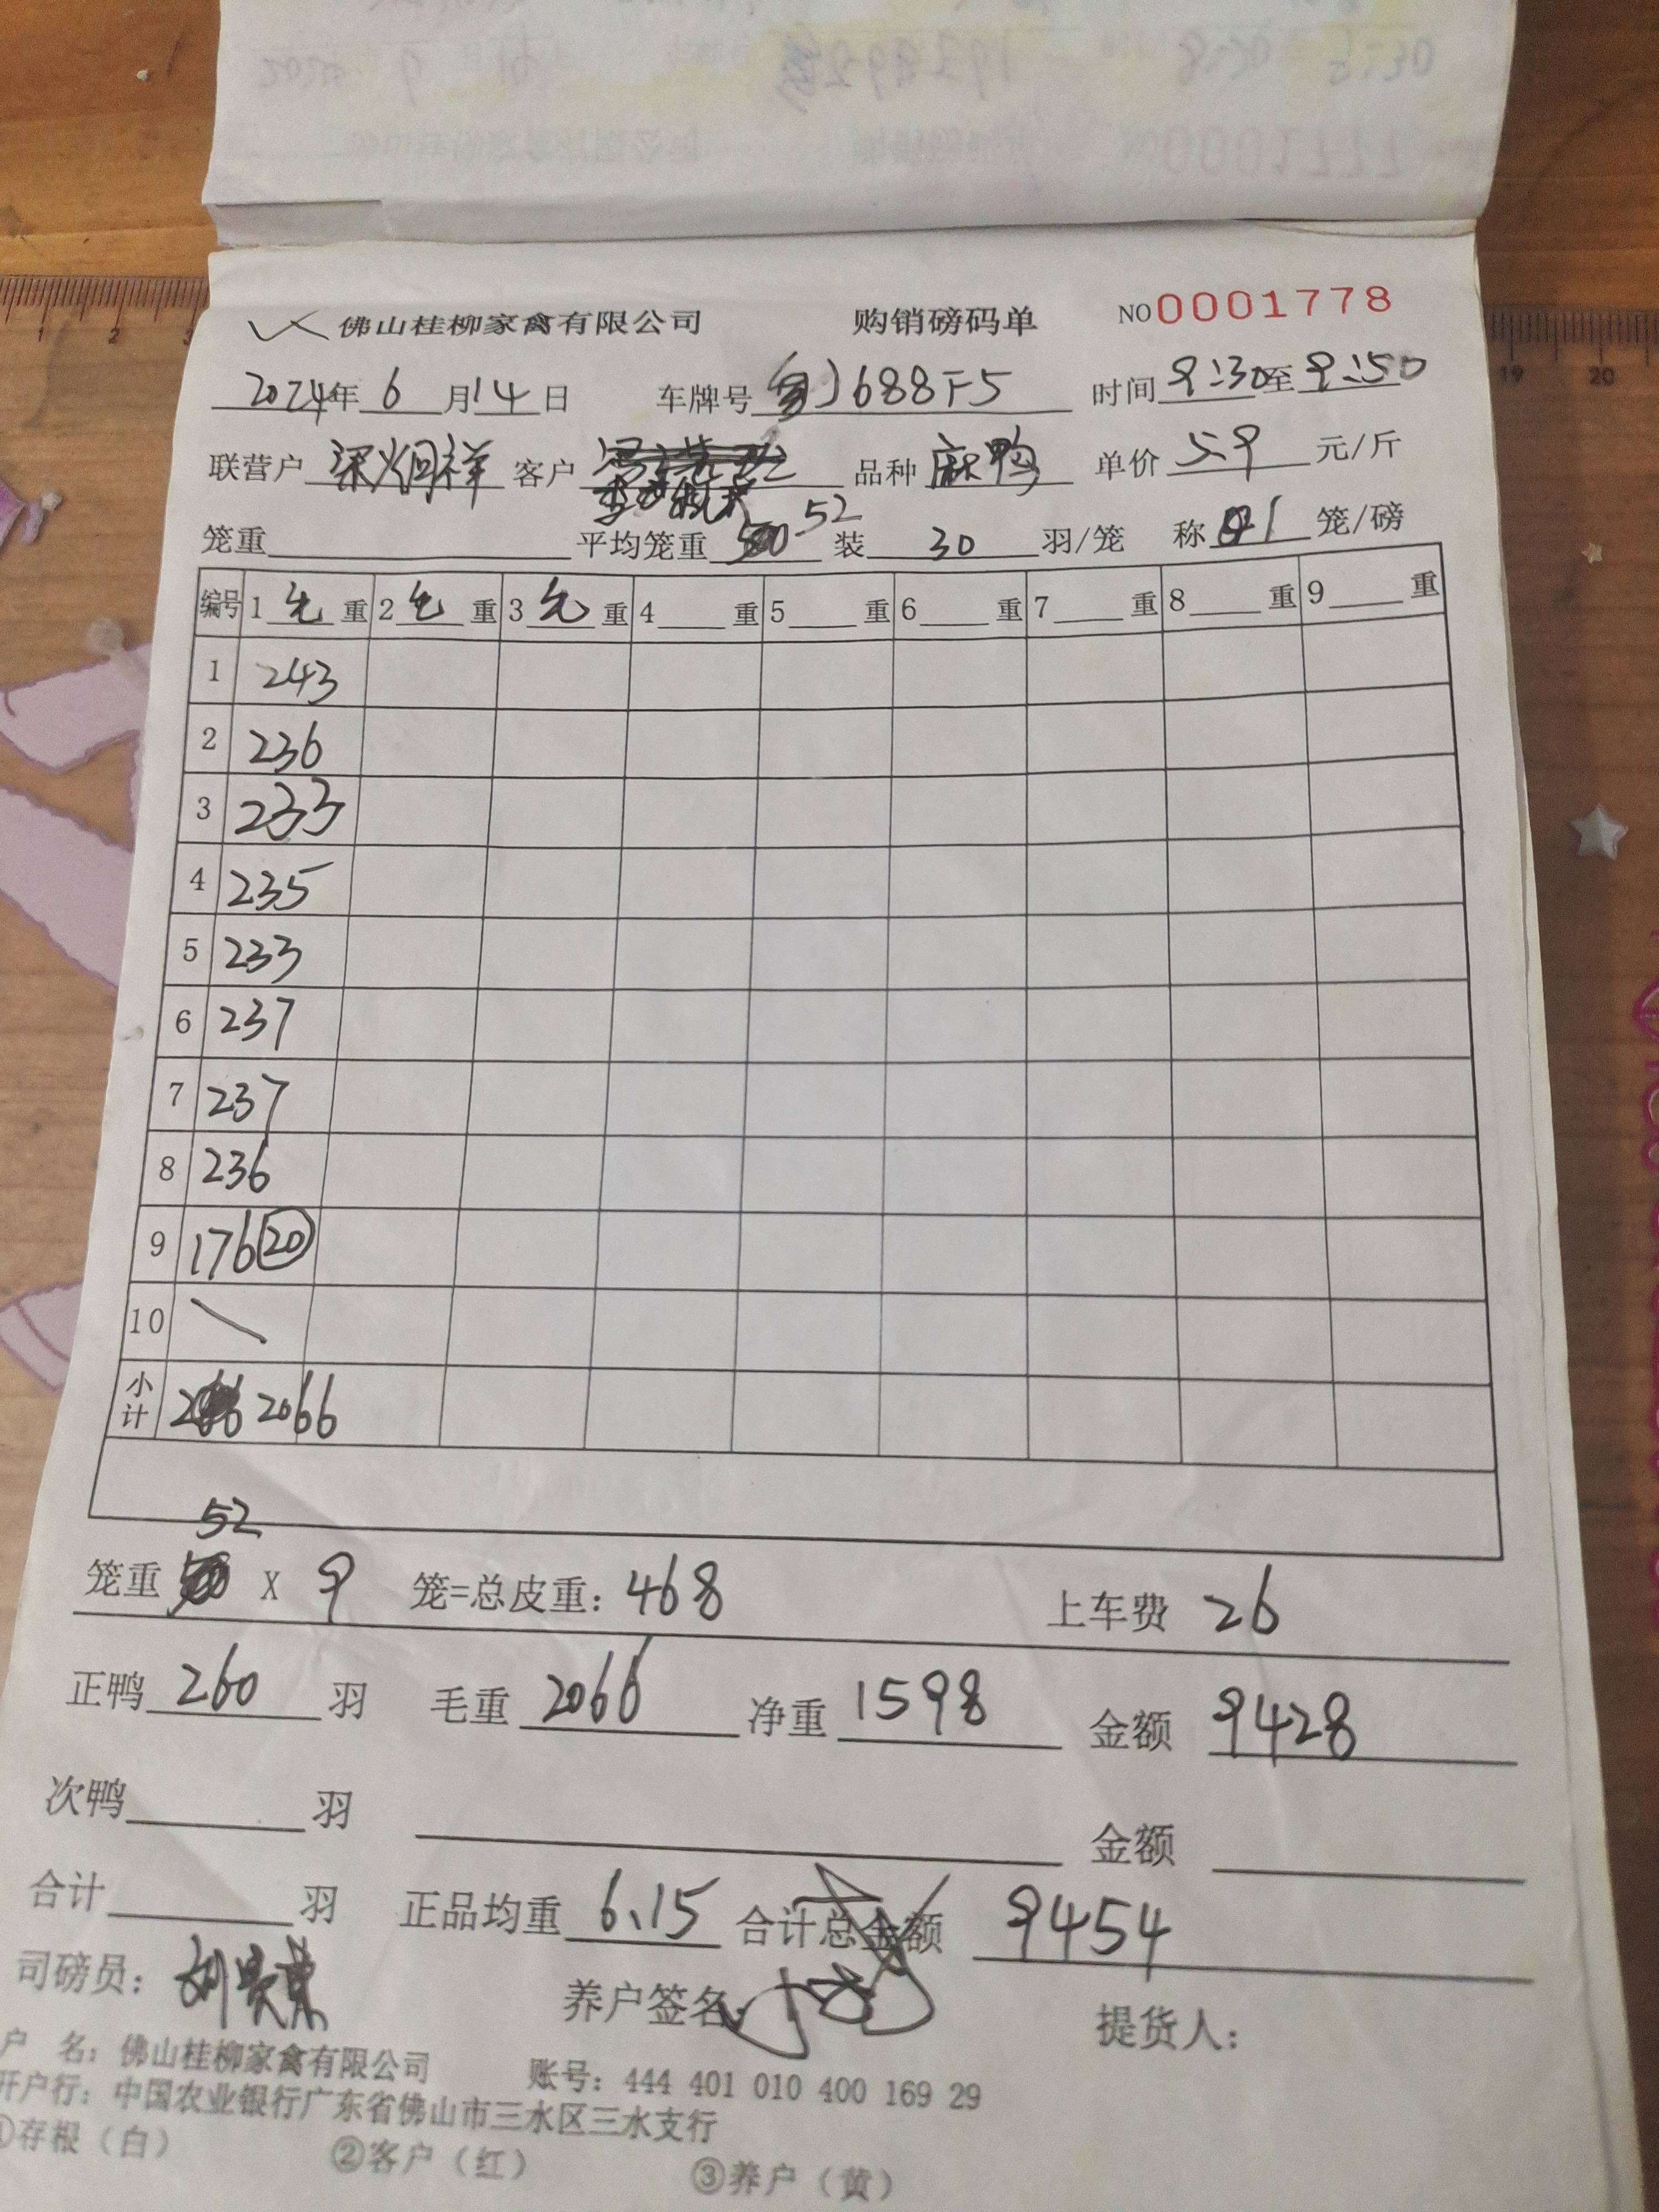 佛山桂柳家禽有限公司 购销磅码单 NO0001778
2024年 6 月14日 车牌号 粤J688F5 时间 9:30至9:50
联营户 梁炯祥 客户 品种 麻鸭 单价 5.9 元/斤
笼重 平均笼重 52 装 30 羽/笼 称 1 笼/磅
编号 1 毛 重 2 毛 重 3 毛 重 4 重 5 重 6 重 7 重 8 重 9 重
1 243
2 236
3 233
4 235
5 233
6 237
7 237
8 236
9 176 20
10
小计 2066
52
笼重 X 9 笼=总皮重: 468 上车费 26
正鸭 260 羽 毛重 2066 净重 1598 金额 9428
次鸭 羽 金额
合计 羽 正品均重 6.15 合计总金额 9454
司磅员: 养户签名: 提货人:
户 名: 佛山桂柳家禽有限公司 账号: 444 401 010 400 169 29
开户行: 中国农业银行广东省佛山市三水区三水支行
①存根（白） ②客户（红） ③养户（黄）
1 2 3 19 20